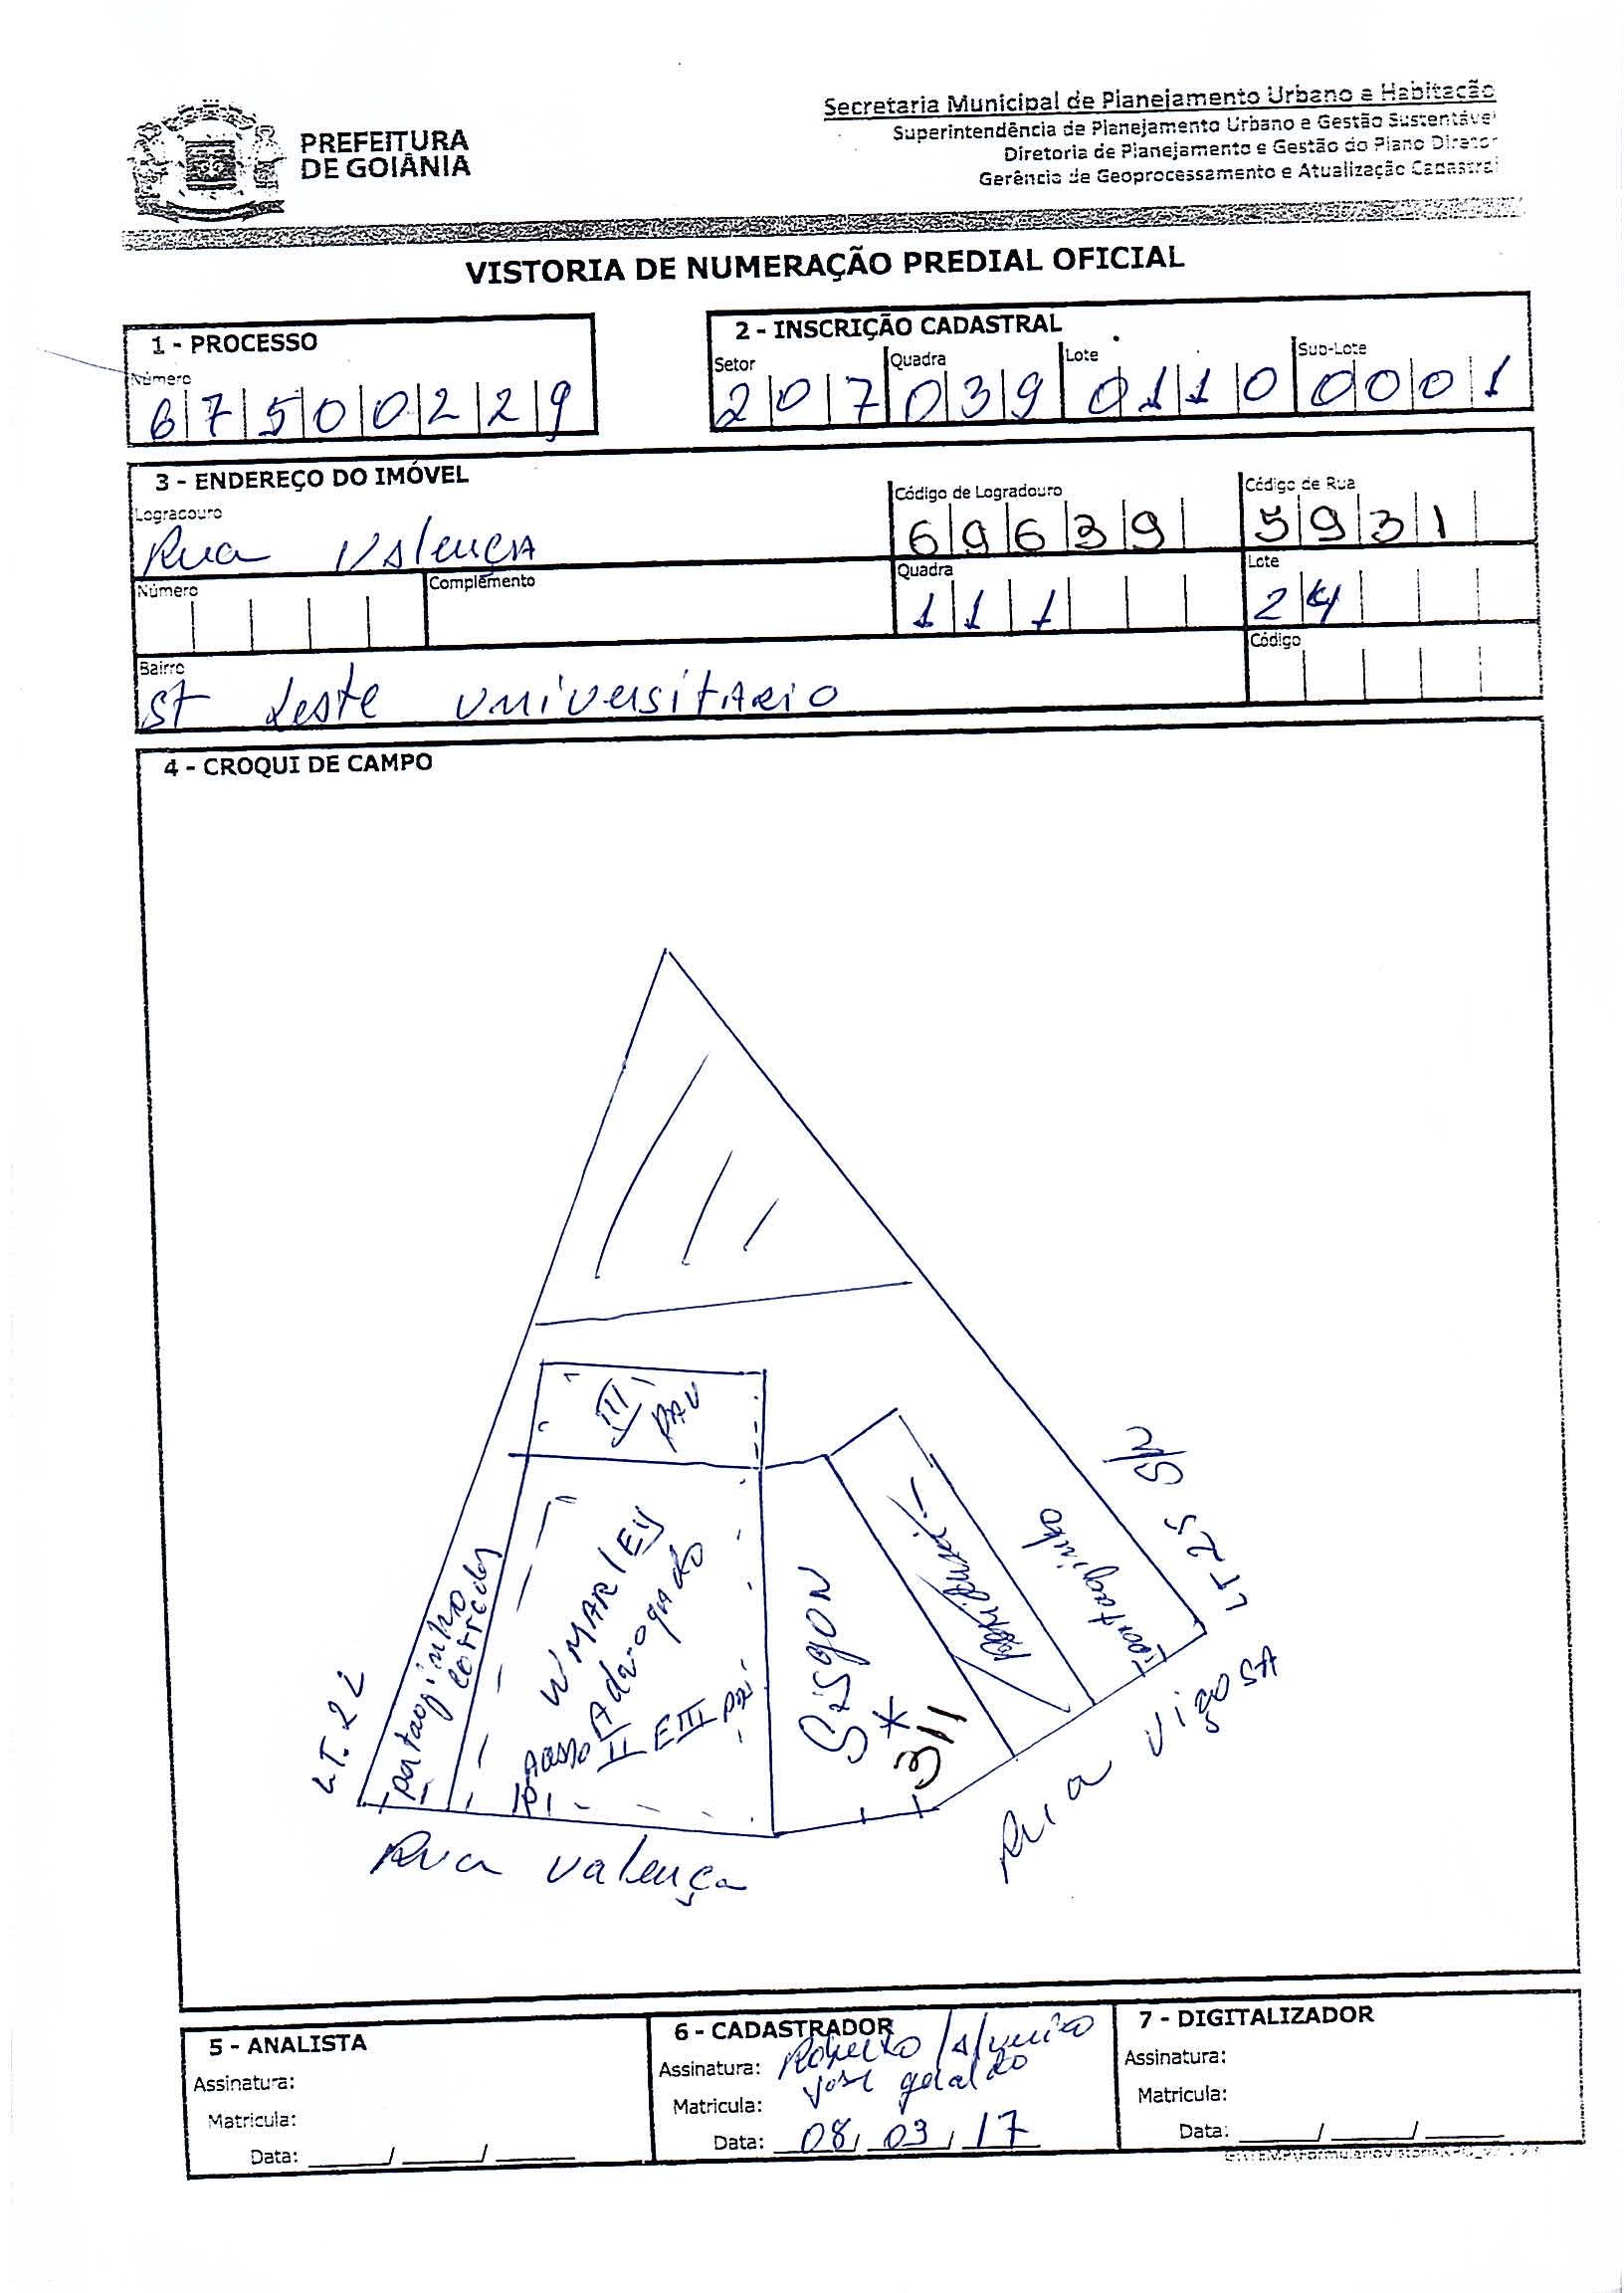 PREFEITURA
DE GOIÂNIA
Secretaria Municipal de Planejamento Urbano e Habitação
Superintendência de Planejamento Urbano e Gestão Sustentável
Diretoria de Planejamento e Gestão do Plano Diretor
Gerência de Geoprocessamento e Atualização Cadastral
VISTORIA DE NUMERAÇÃO PREDIAL OFICIAL
1 - PROCESSO
Número
67500229
2 - INSCRIÇÃO CADASTRAL
Setor Quadra Lote Sub-Lote
207 039 0110 0001
3 - ENDEREÇO DO IMÓVEL
Logradouro Código de Logradouro Código de Rua
Rua Valença 69639 5931
Número Complemento Quadra Lote
111 24
Bairro Código
St Leste universitario
4 - CROQUI DE CAMPO
III
PAV
portaozinho
corredor
Adevogado
II E III
Sisgon
*
311
Residenci
portaozinho
LT. 22
LT 25 S/N
Rua valença
Rua viçosa
5 - ANALISTA
Assinatura:
Matricula:
Data: / /
6 - CADASTRADOR
Assinatura: Roberto
José geraldo
Matricula:
Data: 08/03/17
7 - DIGITALIZADOR
Assinatura:
Matricula:
Data: / /